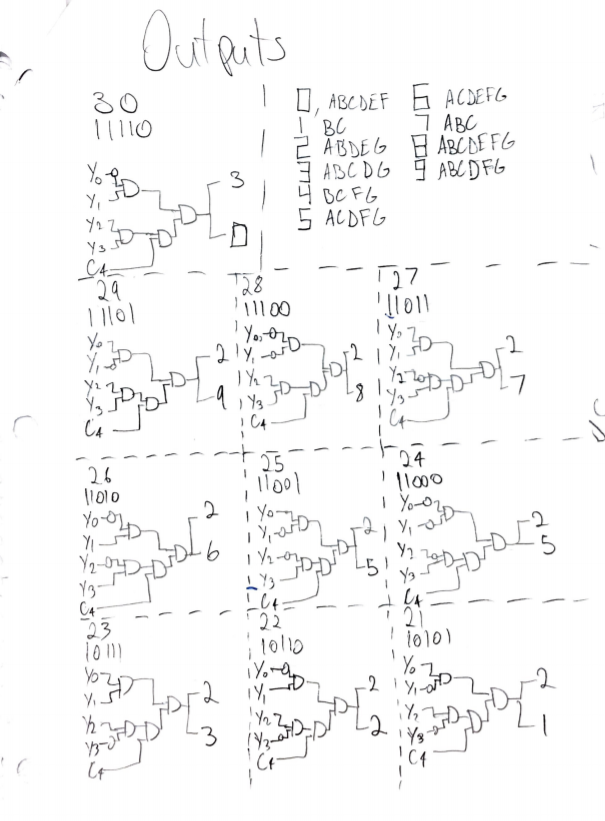 Outputs
30
11110
Y0
Y1
Y2
Y3
C4
3
0
0, ABCDEF
1 BC
2 ABDEG
3 ABCDG
4 BCFG
5 ACDFG
6 ACDEFG
7 ABC
8 ABCDEFG
9 ABCDFG
29
11101
Y0
Y1
Y2
Y3
C4
2
9
28
11100
Y0
Y1
Y2
Y3
C4
2
8
27
11011
Y0
Y1
Y2
Y3
C4
2
7
26
11010
Y0
Y1
Y2
Y3
C4
2
6
25
11001
Y0
Y1
Y2
Y3
C4
2
5
24
11000
Y0
Y1
Y2
Y3
C4
2
5
23
10111
Y0
Y1
Y2
Y3
C4
2
3
22
10110
Y0
Y1
Y2
Y3
C4
2
2
21
10101
Y0
Y1
Y2
Y3
C4
2
1